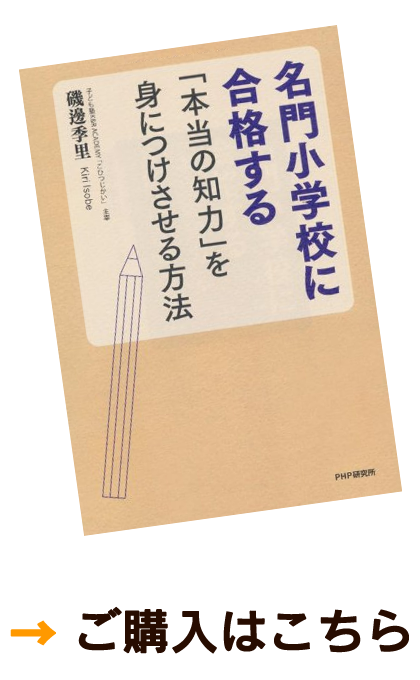 名門小学校に
合格する
「本当の知力」を
身につけさせる方法
子ども塾K&R ACADEMY「こひつじかい」主宰
磯邊季里 Kiri Isobe
PHP研究所
→ ご購入はこちら